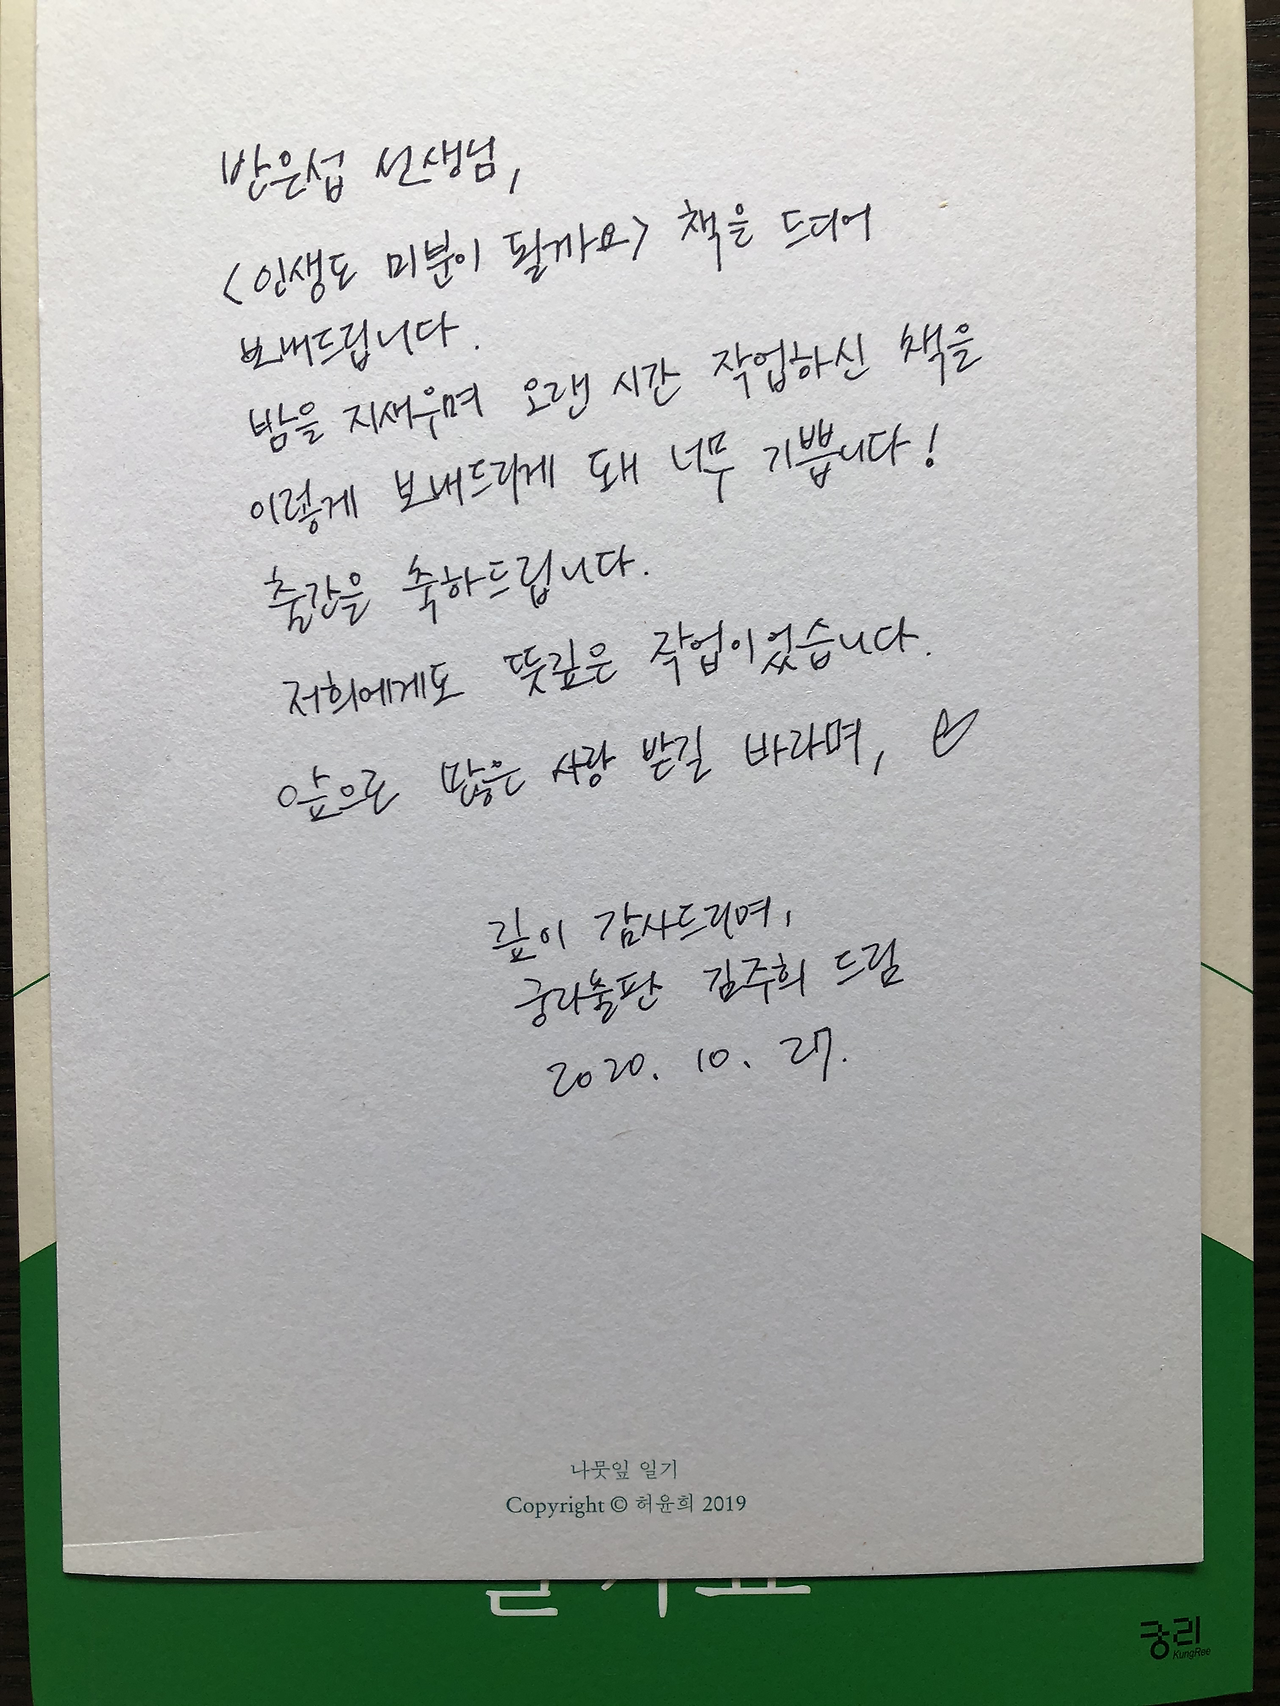 반은섭 선생님,
<인생도 미분이 될까요> 책을 드디어
보내드립니다.
밤을 지새우며 오랜 시간 작업하신 책을
이렇게 보내드리게 돼 너무 기쁩니다!
출간을 축하드립니다.
저희에게도 뜻깊은 작업이었습니다.
앞으로 많은 사랑 받길 바라며,
깊이 감사드리며,
궁리출판 김주희 드림
2020. 10. 27.
나뭇잎 일기
Copyright © 허윤희 2019
궁리
KungRee